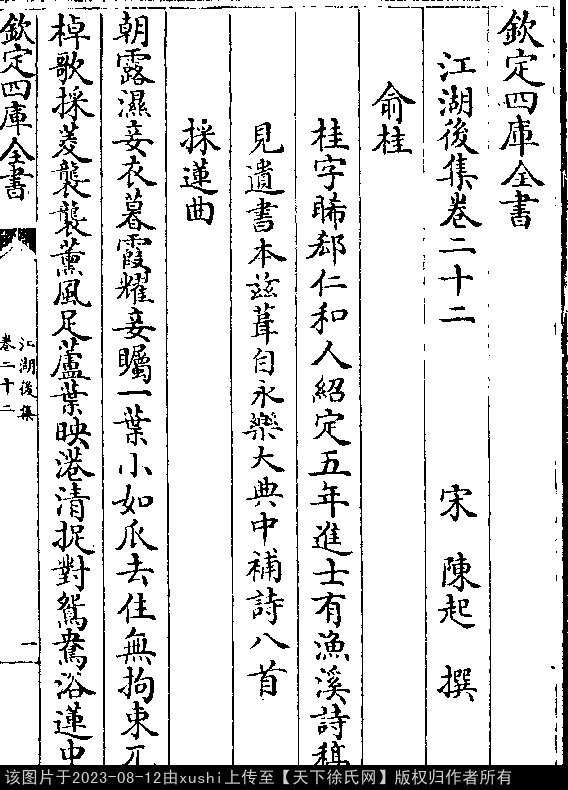 欽定四庫全書
江湖後集卷二十二
宋 陳起 撰
俞桂
桂字晞郄仁和人紹定五年進士有漁溪詩稿
見遺書本兹葺自永樂大典中補詩八首
採蓮曲
朝露濕妾衣暮霞耀妾矚一葉小如瓜去住無拘束兀
棹歌採菱襲襲薰風足蘆葉映港清捉對鴛鴦浴蓮中
欽定四庫全書
江湖後集
卷二十二
一
该图片于2023-08-12由xushi上传至【天下徐氏网】版权归作者所有